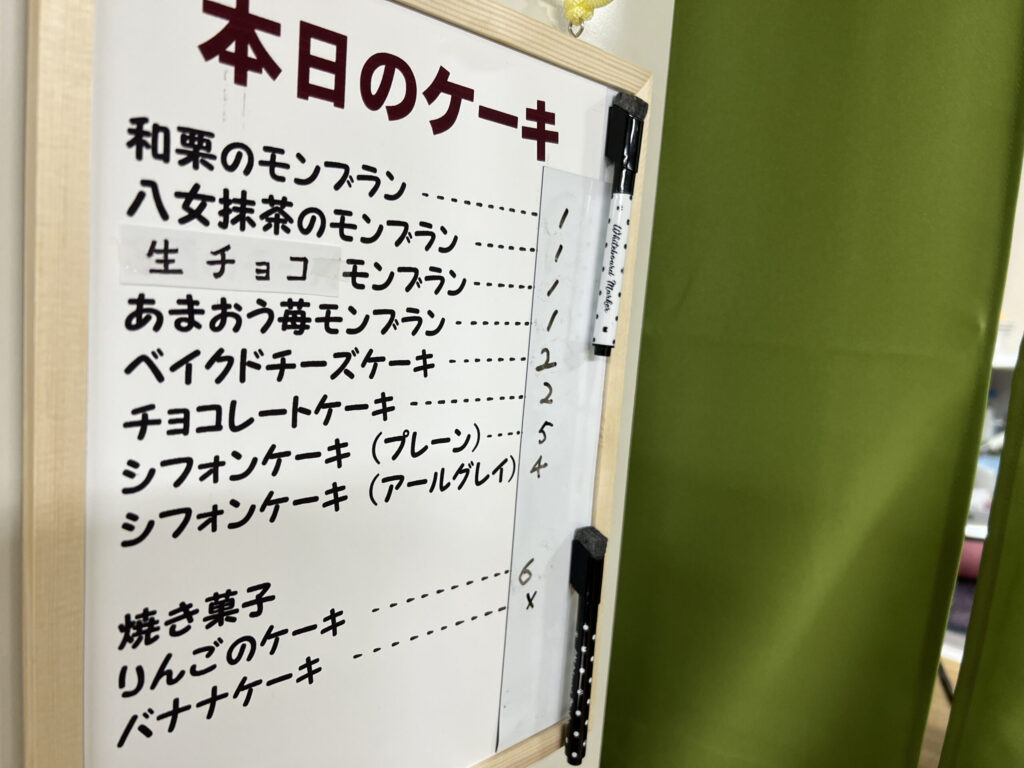 本日のケーキ
和栗のモンブラン ---------- 1
八女抹茶のモンブラン ------ 1
生チョコ モンブラン ------- 1
あまおう苺モンブラン ------- 1
ベイクドチーズケーキ -------- 2
チョコレートケーキ ----------- 2
シフォンケーキ（プレーン）---- 5
シフォンケーキ（アールグレイ） 4
焼き菓子
りんごのケーキ ------------- 6
バナナケーキ --------------- x
Whiteboard Marker